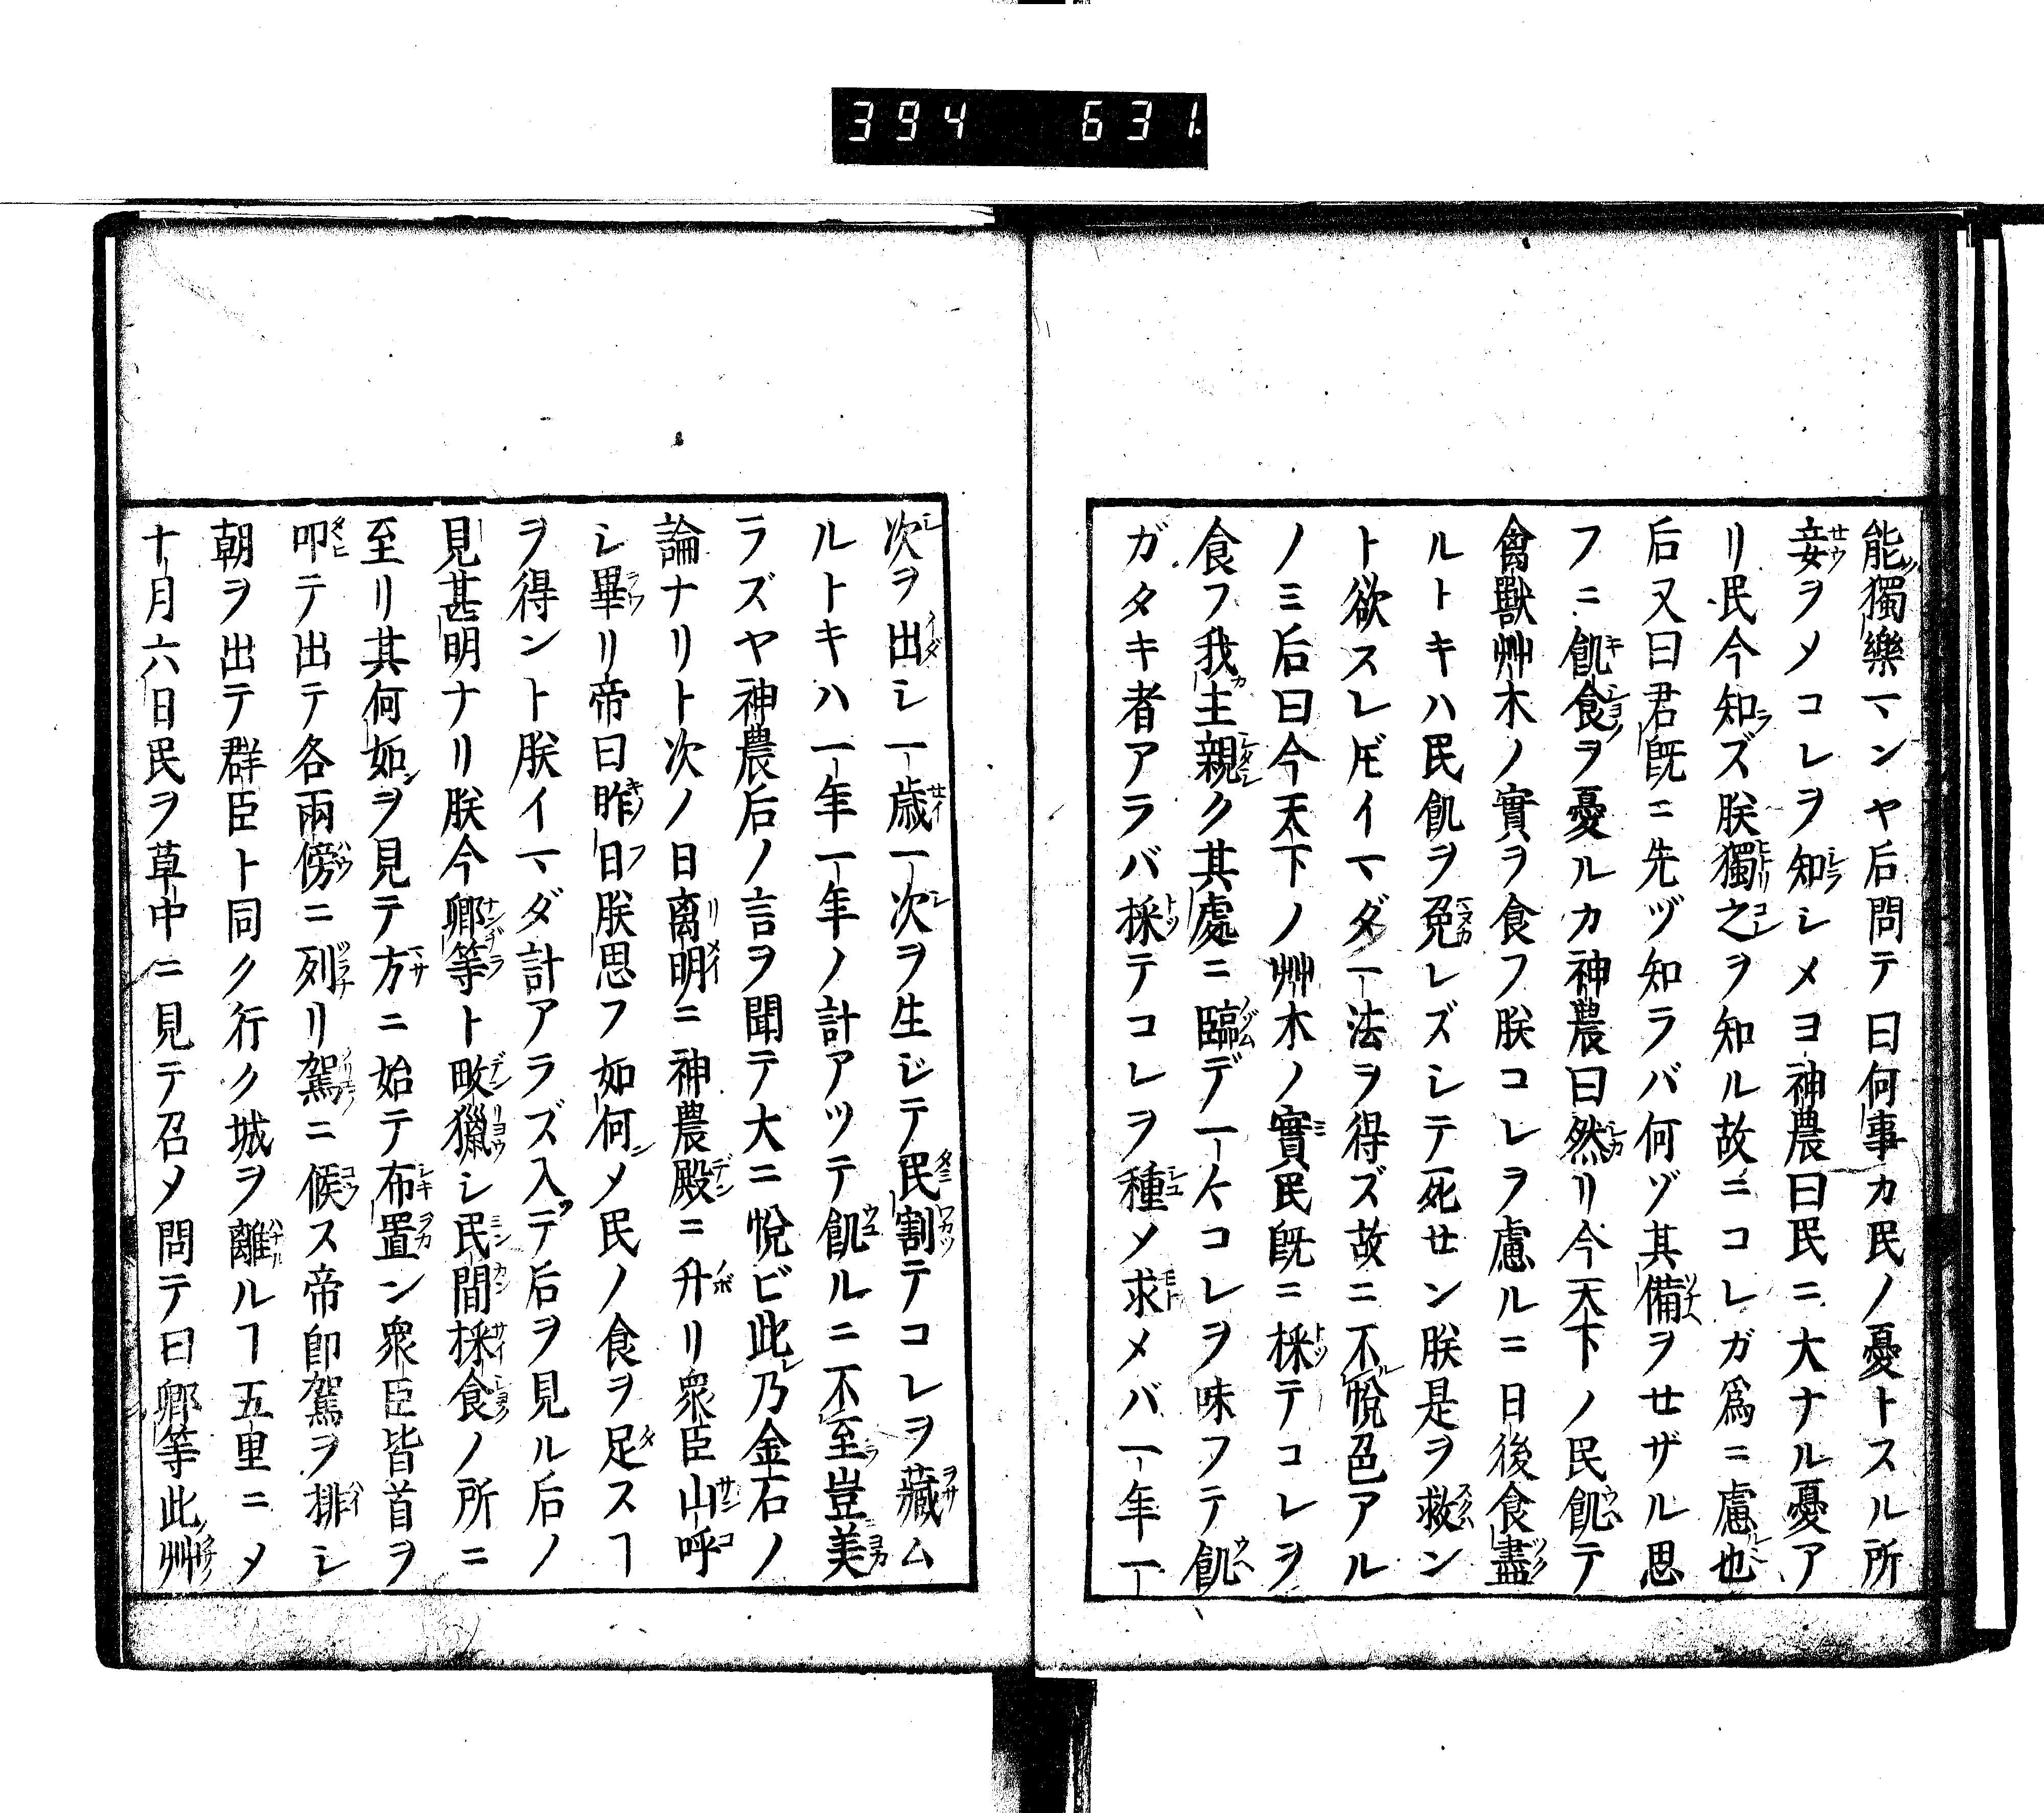 394 631
能獨樂マンヤ后問テ曰何事カ民ノ憂トスル所
妾ヲメコレヲ知シメヨ神農曰民ニ大ナル憂ア
リ民今知ズ朕獨之ヲ知ル故ニコレガ爲ニ慮也
后又曰君既ニ先ヅ知ラバ何ゾ其備ヲセザル思
フニ飢食ヲ憂ルカ神農曰然リ今天下ノ民飢テ
禽獸艸木ノ實ヲ食フ朕コレヲ慮ルニ日後食盡
ルトキハ民飢ヲ免レズシテ死セン朕是ヲ救ン
ト欲スレ𪜈イマダ一法ヲ得ズ故ニ不悅色アル
ノミ后曰今天下ノ艸木ノ實民既ニ採テコレヲ
食フ我主親ク其處ニ臨デ一々コレヲ味フテ飢
ガタキ者アラバ採テコレヲ種メ求メバ一年一
次ヲ出シ一歳一次ヲ生ジテ民割テコレヲ藏ム
ルトキハ一年一年ノ計アツテ飢ルニ不至豈美
ラズヤ神農后ノ言ヲ聞テ大ニ悅ビ此乃金石ノ
論ナリト次ノ日离明ニ神農殿ニ升リ衆臣山呼
シ畢リ帝曰昨日朕思フ如何メ民ノ食ヲ足スヿ
ヲ得ント朕イマダ計アラズ入デ后ヲ見ル后ノ
見甚明ナリ朕今卿等ト畋獵シ民間採食ノ所ニ
至リ其何如ヲ見テ方ニ始テ布置ン衆臣皆首ヲ
叩テ出テ各兩傍ニ列リ駕ニ候ス帝卽駕ヲ排シ
朝ヲ出テ群臣ト同ク行ク城ヲ離ルヿ五里ニメ
十月六日民ヲ草中ニ見テ召メ問テ曰卿等此艸